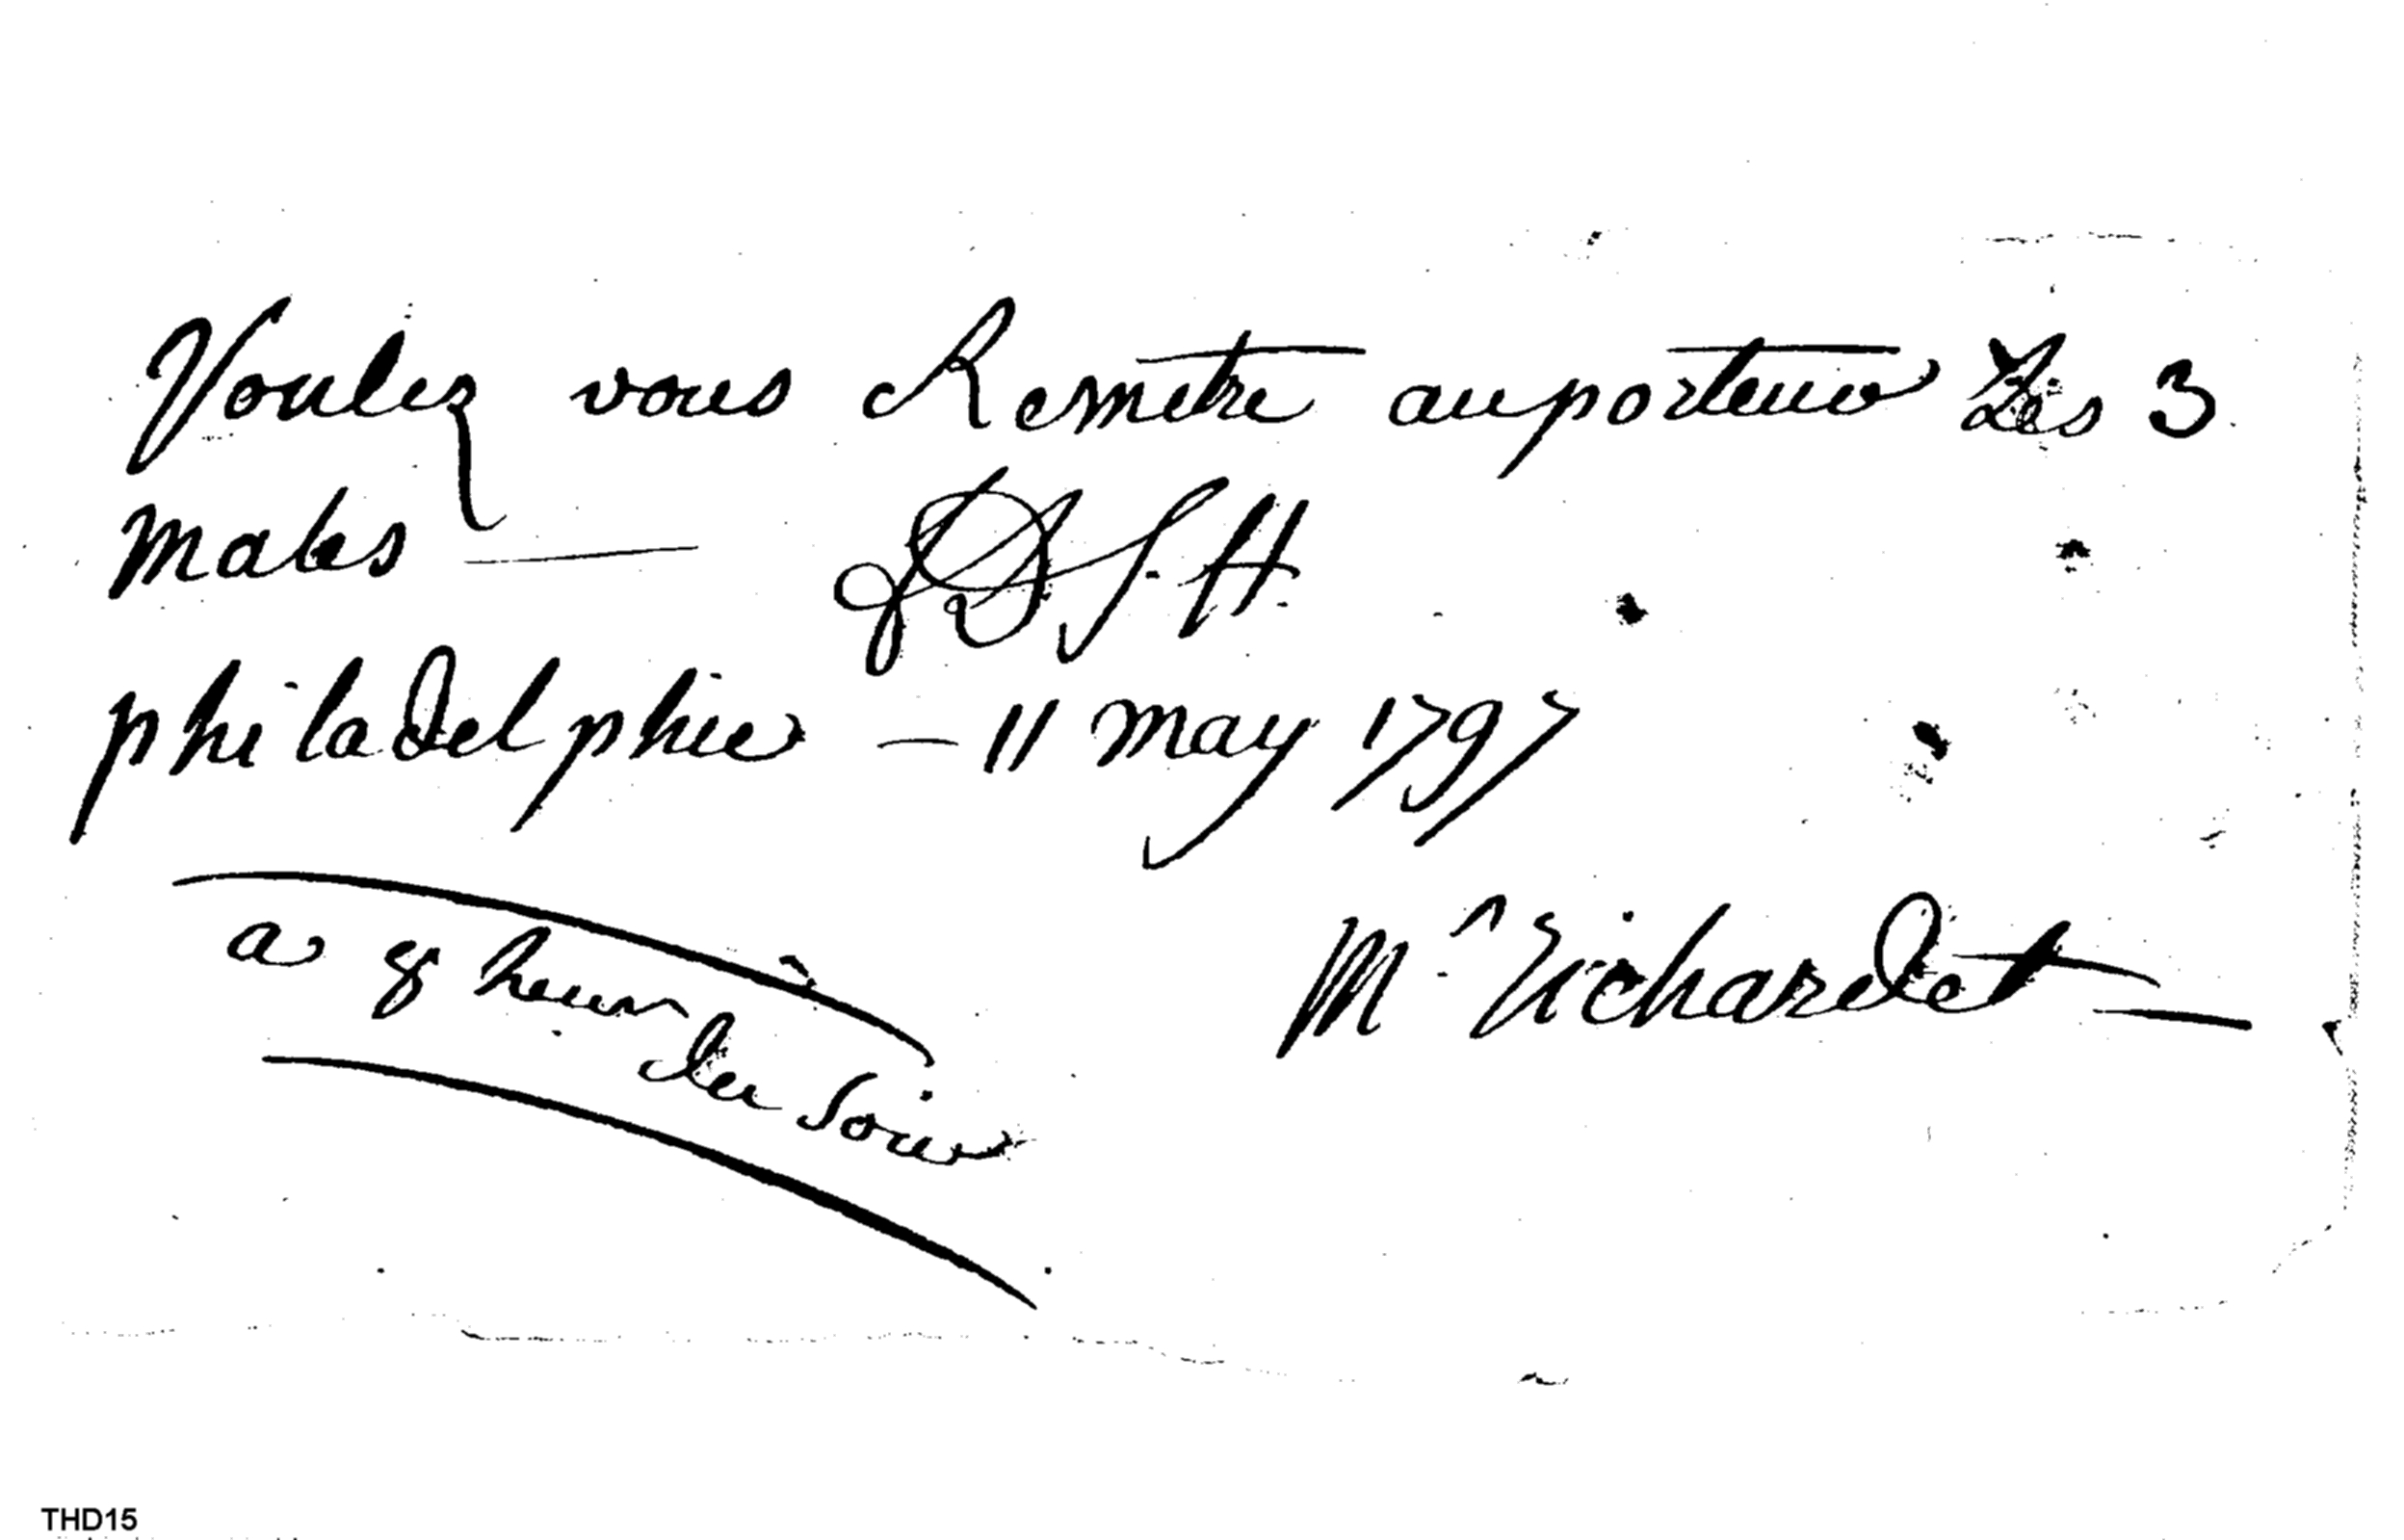 Voulez vous Remetre auporteur Les 3.
males — DS.H.
philadelphie — 11 may 1797
a 8 heurs
du Soir
Mr. Richardet —
THD15